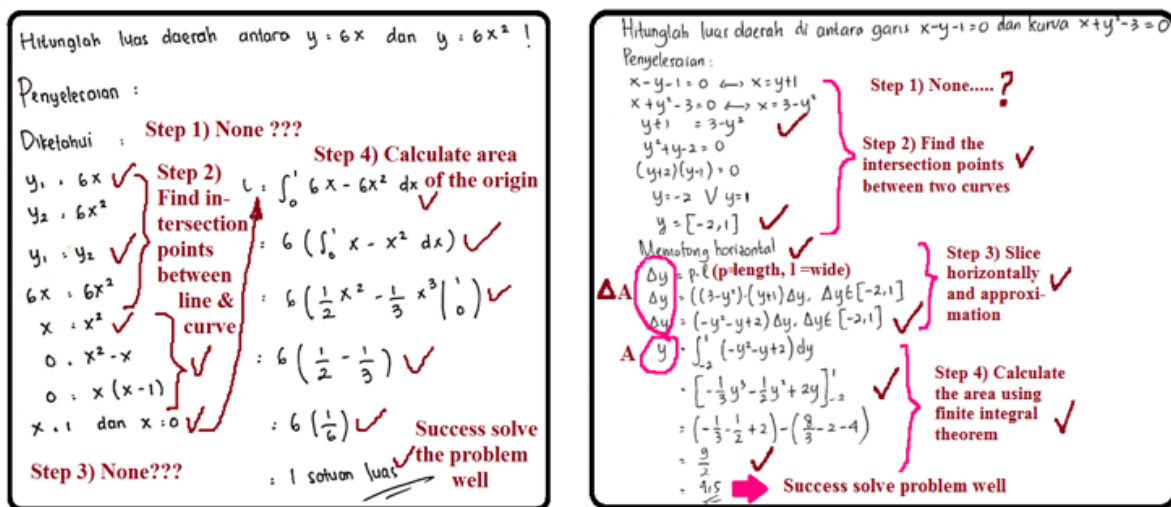 Hitunglah luas daerah antara y = 6x dan y = 6x² !
Penyelesaian :
Diketahui :
Step 1) None ???
y₁ = 6x
y₂ = 6x²
y₁ = y₂
6x = 6x²
x = x²
0 = x² - x
0 = x (x-1)
x = 1 dan x = 0
Step 2)
Find in-
tersection
points
between
line &
curve
Step 3) None???
Step 4) Calculate area
of the origin
L = ∫₀¹ 6x - 6x² dx
= 6 (∫₀¹ x - x² dx)
= 6 (1/2 x² - 1/3 x³ |₀¹)
= 6 (1/2 - 1/3)
= 6 (1/6)
= 1 satuan luas
Success solve
the problem
well
Hitunglah luas daerah di antara garis x-y-1=0 dan kurva x+y²-3=0
Penyelesaian :
x-y-1=0 ↔ x=y+1
x+y²-3=0 ↔ x=3-y²
y+1 = 3-y²
y²+y-2=0
(y+2)(y-1)=0
y=-2 ∨ y=1
y=[-2,1]
Step 1) None..... ?
Step 2) Find the
intersection points
between two curves
Memotong horizontal
Δy = p.l (p=length, l =wide)
ΔA
Δy = ((3-y²)-(y+1)Δy, Δy∈[-2,1]
Δy = (-y²-y+2)Δy, Δy∈[-2,1]
Step 3) Slice
horizontally
and approxi-
mation
A y = ∫₋₂¹ (-y²-y+2)dy
= [-1/3 y³ - 1/2 y² + 2y]₋₂¹
= (-1/3 - 1/2 + 2) - (8/3 - 2 - 4)
= 9/2
= 4,5
Step 4) Calculate
the area using
finite integral
theorem
Success solve problem well